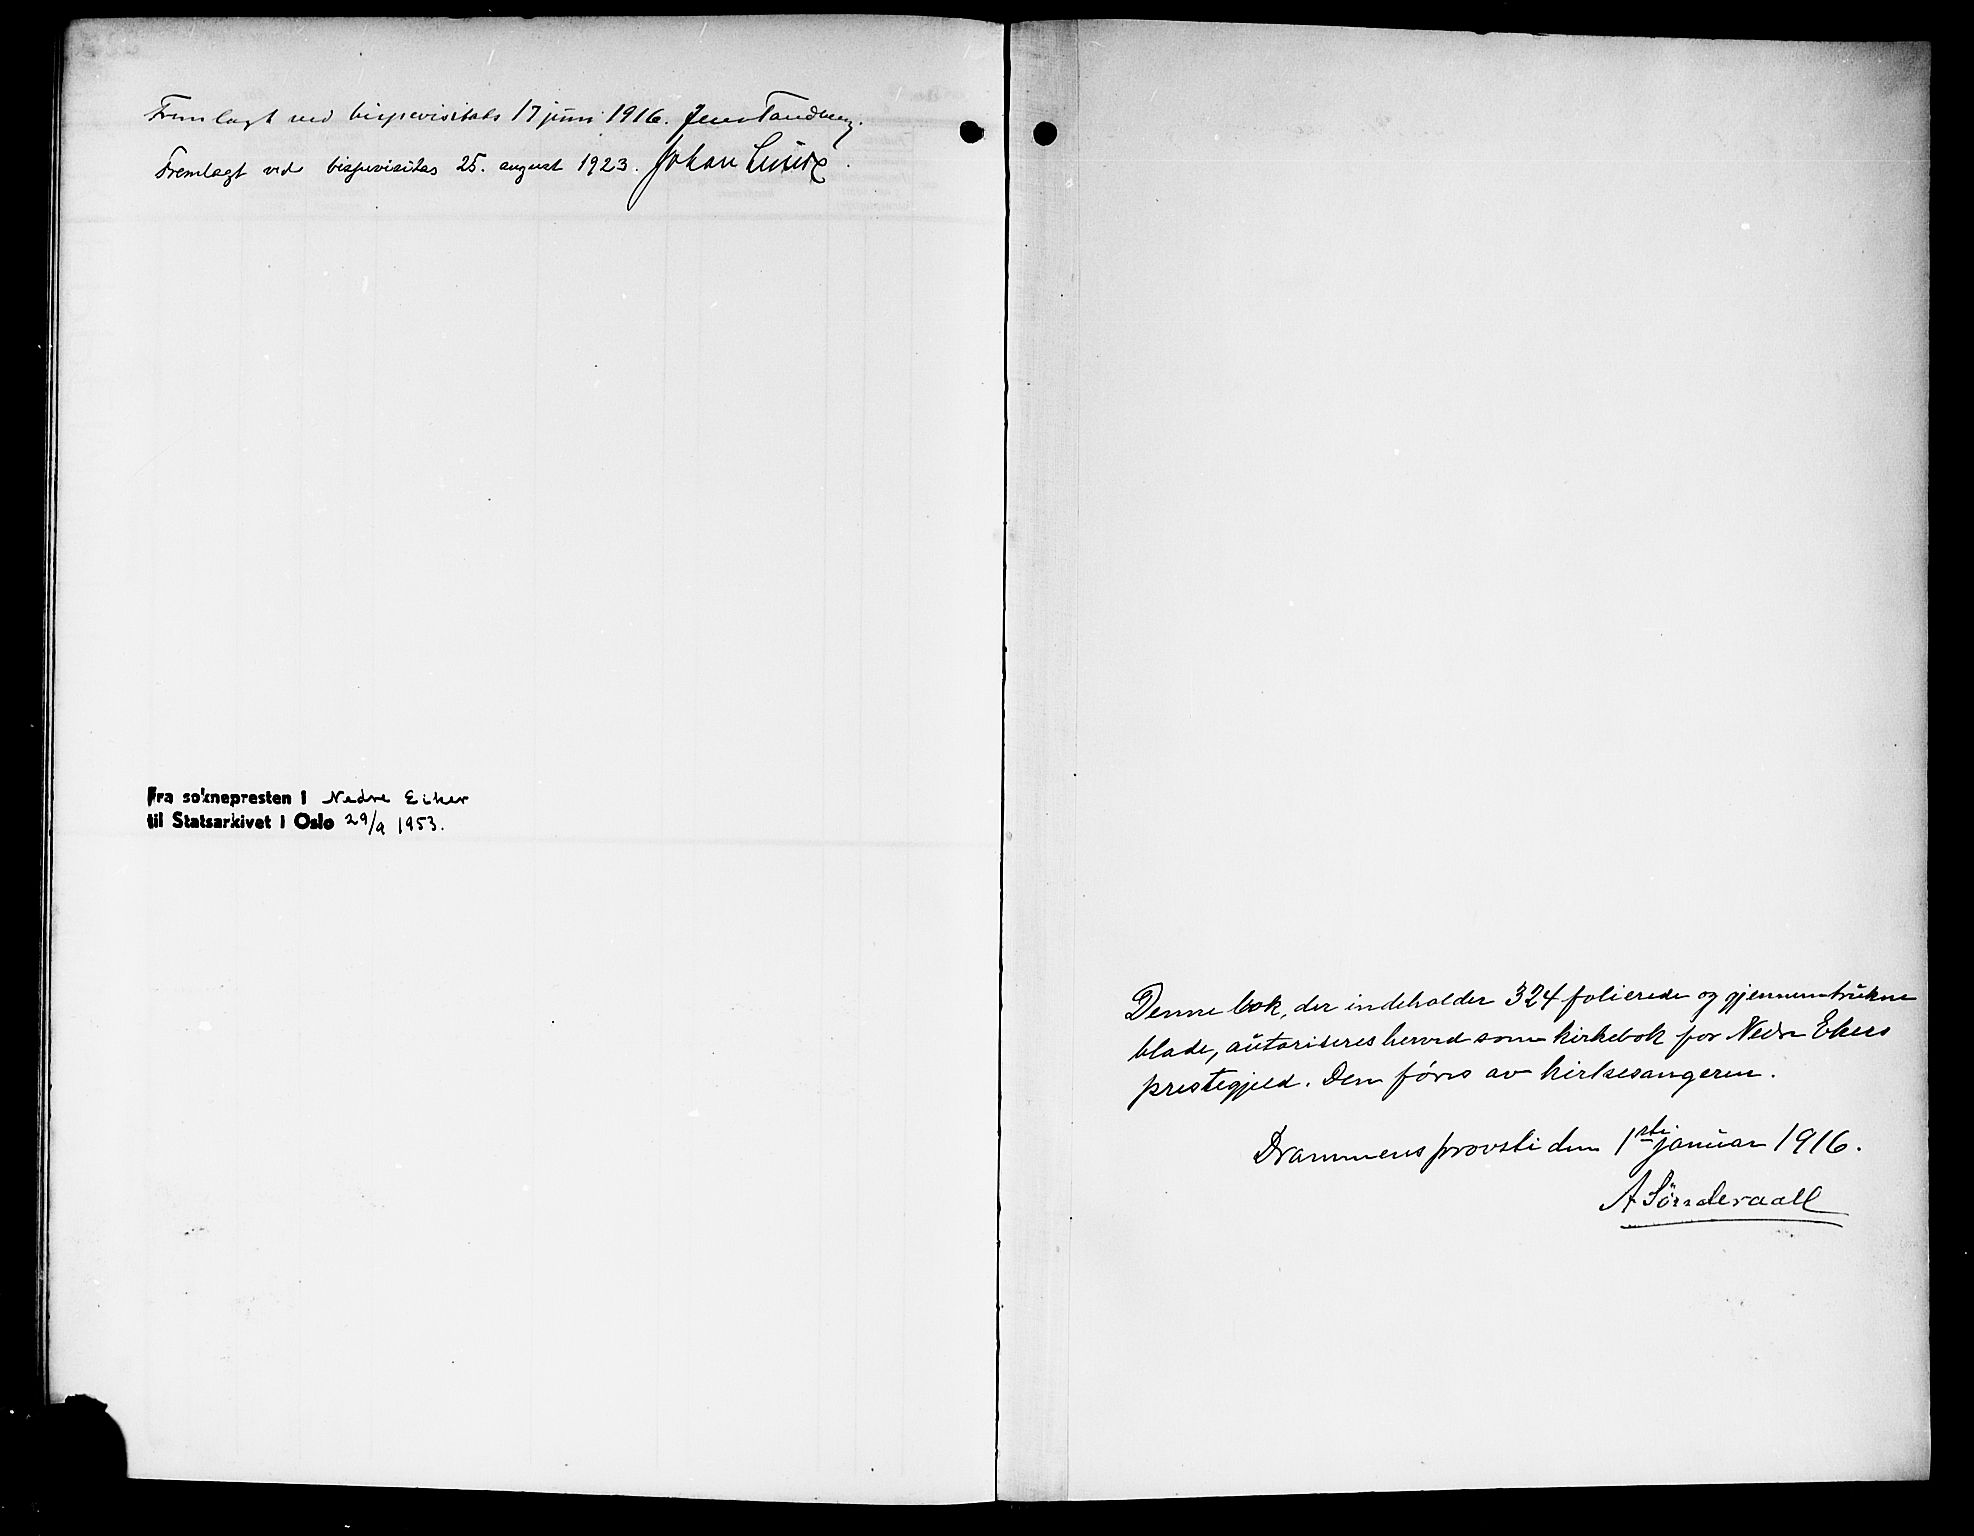 Fremlagt ved bispevisitats 17 juni 1916. Jens Tandberg.
Fremlagt ved bispevisitas 25. august 1923. Johan Lunde.
Fra soknepresten i Nedre Eiker
til Statsarkivet i Oslo 29/9 1953.
Denne bok, der indeholder 324 folierede og gjennemtrukne
blade, autoriseres herved som kirkebok for Nedre Ekers
prestegjeld. Den føres av kirkesangeren.
Drammens provsti den 1ste januar 1916.
A Sönderaall